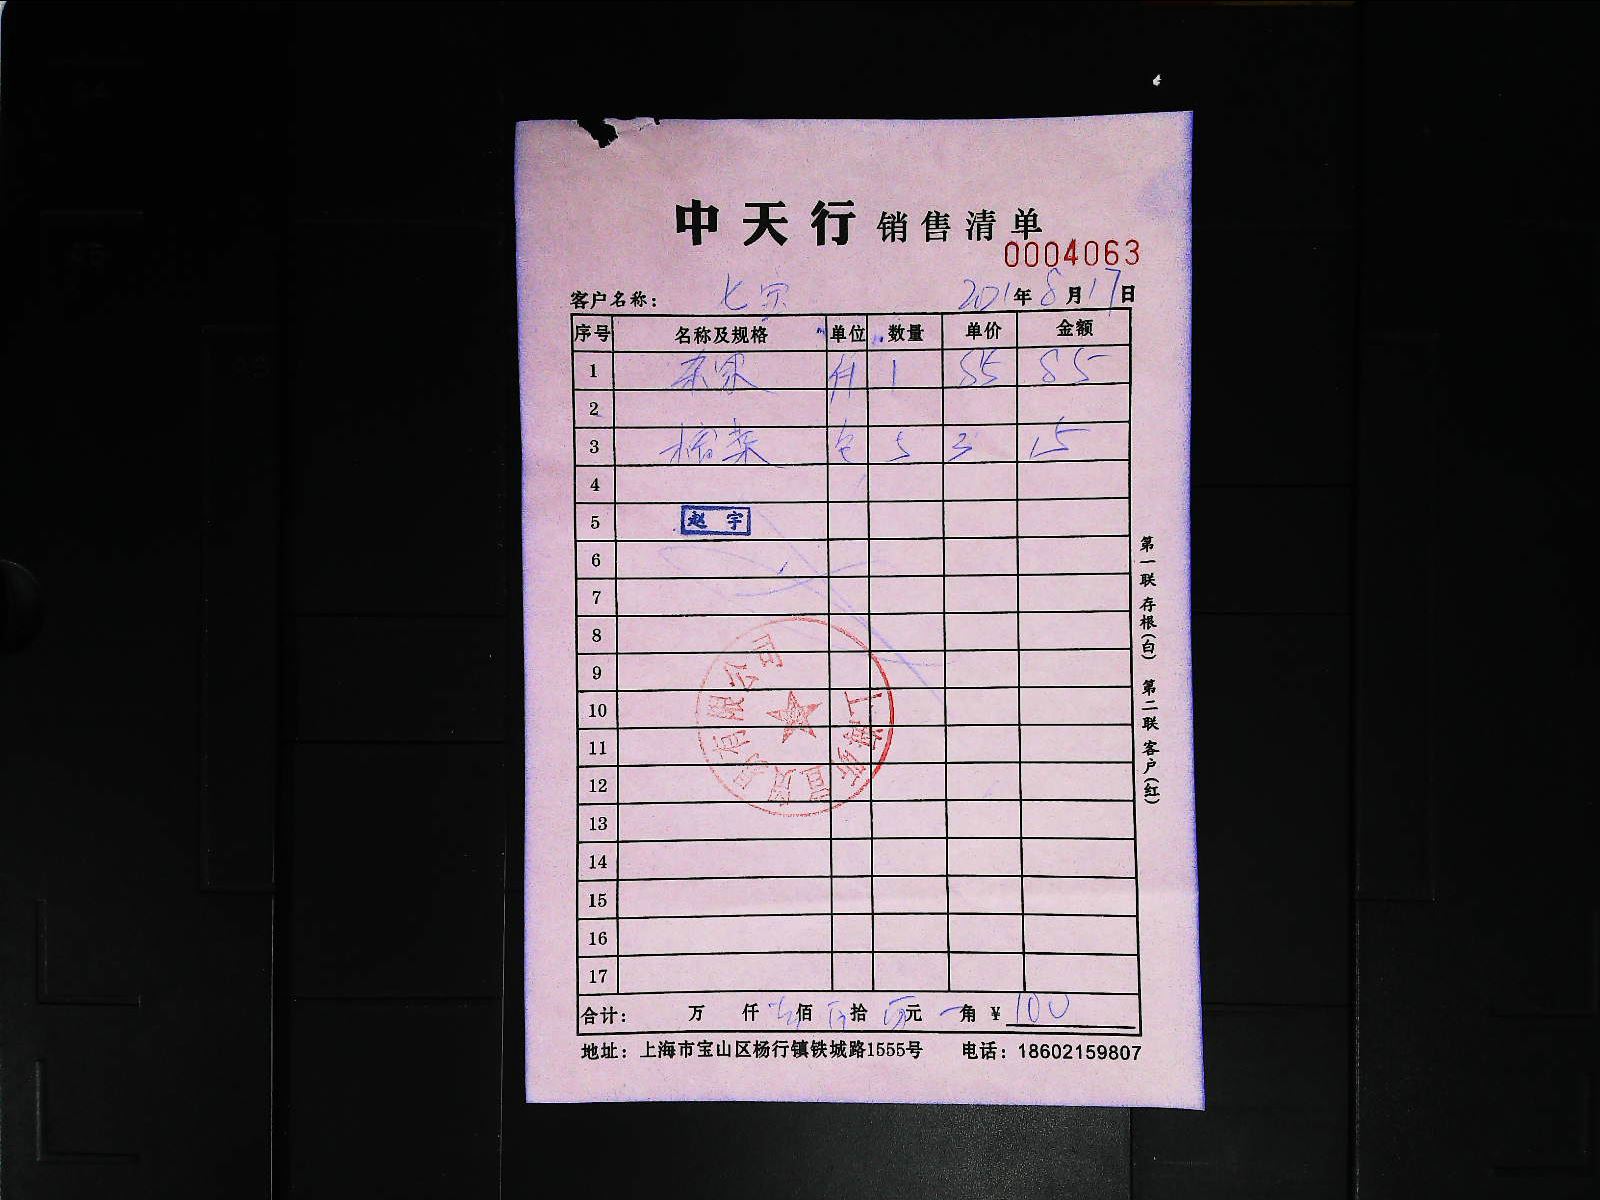 中天行 销售清单
0004063
客户名称： 七宗 2021年8月17日
序号 名称及规格 单位 数量 单价 金额
1 杂果 件 1 85 85
2
3 榨菜 包 5 3 15
4
5 赵宇
6
7
8
9
10
11
12
13
14
15
16
17
合计： 万 仟 壹佰 拾 元 角 ¥ 100
地址：上海市宝山区杨行镇铁城路1555号 电话：18602159807
第一联 存根（白） 第二联 客户（红）